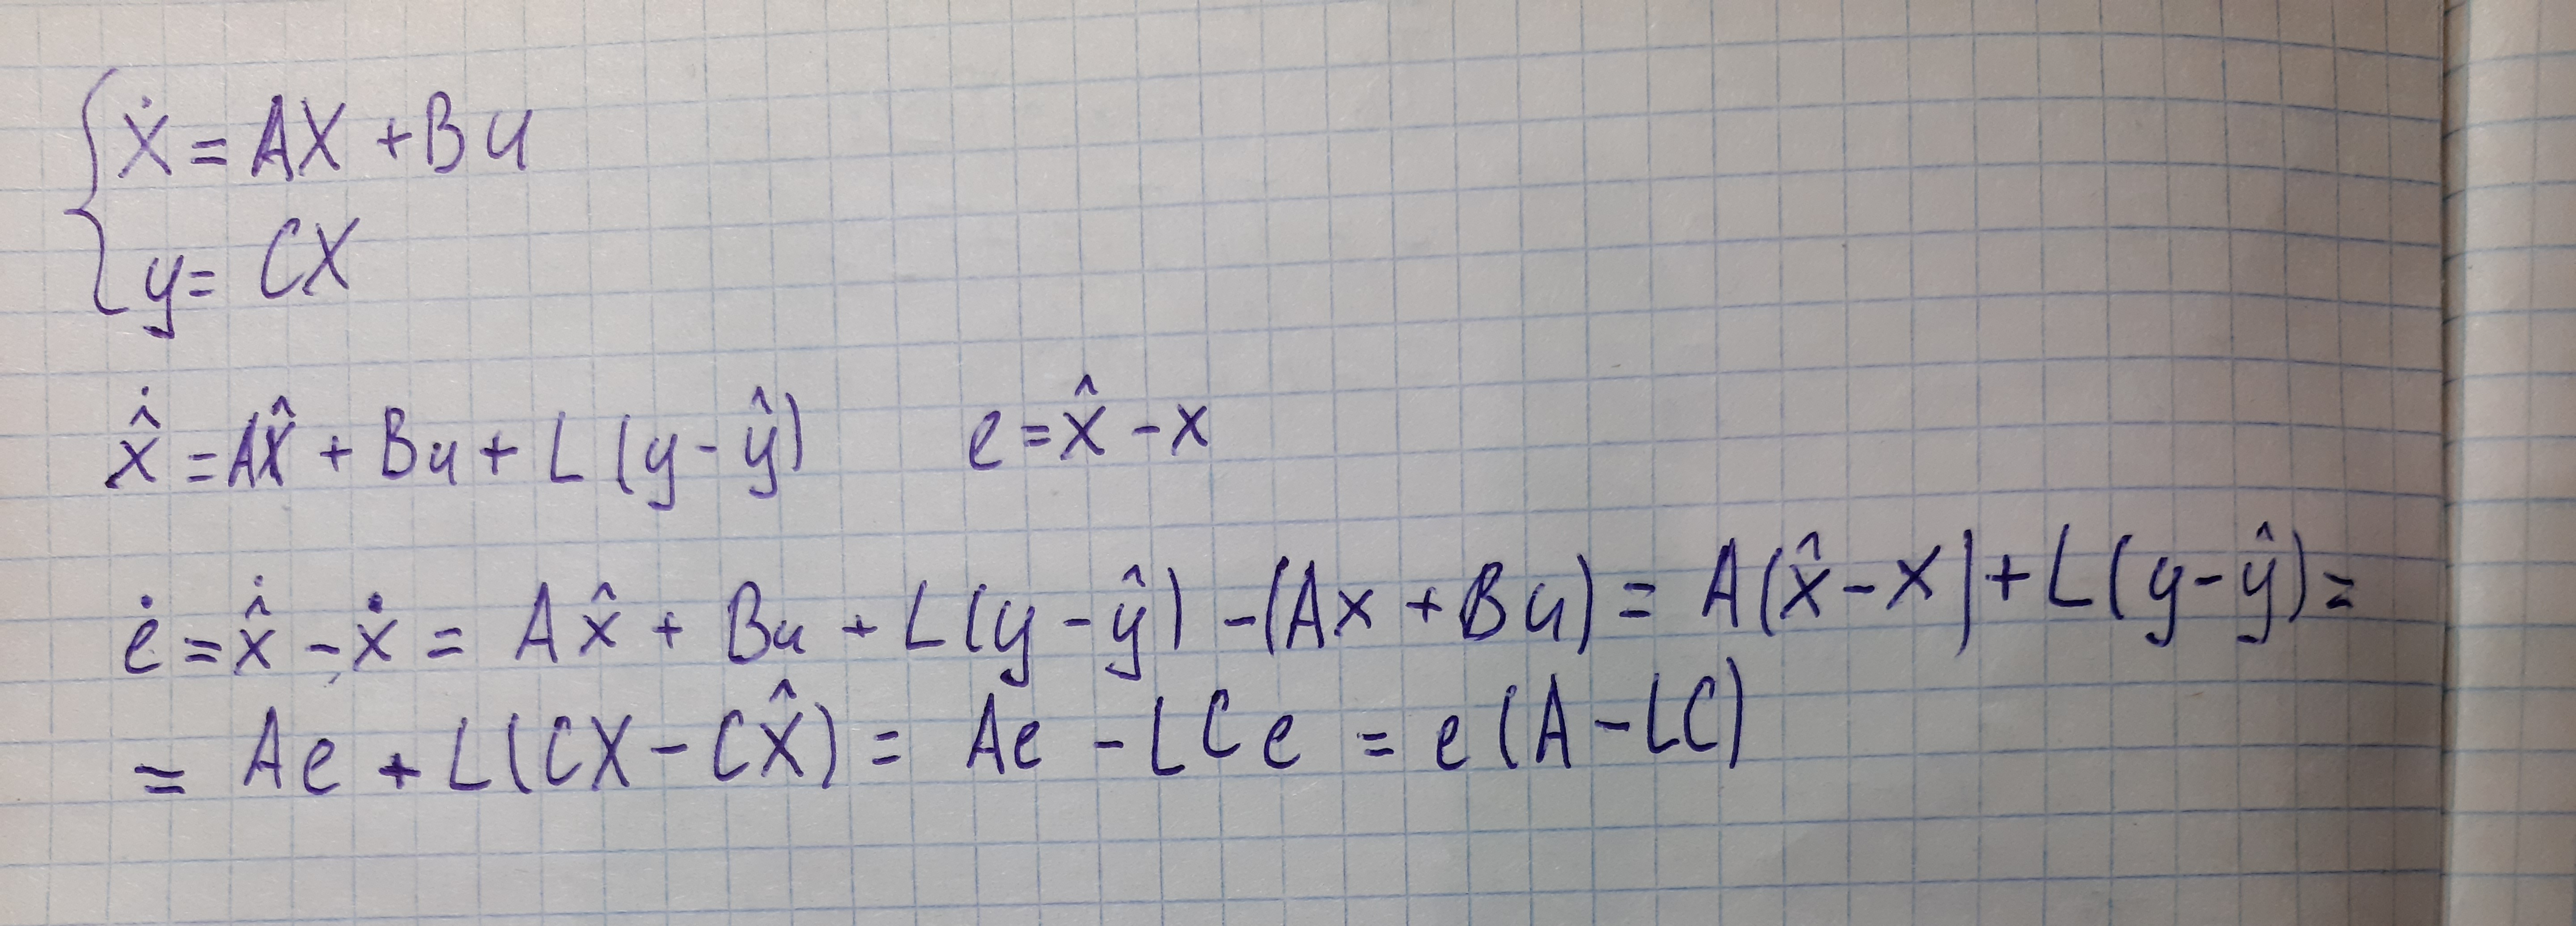 ẋ = AX + Bu
y = CX
x̂̇ = Ax̂ + Bu + L(y - ŷ)    e = x̂ - x
ė = x̂̇ - ẋ = Ax̂ + Bu + L(y - ŷ) - (Ax + Bu) = A(x̂ - x) + L(y - ŷ) =
= Ae + L(CX - CX̂) = Ae - LCe = e(A - LC)